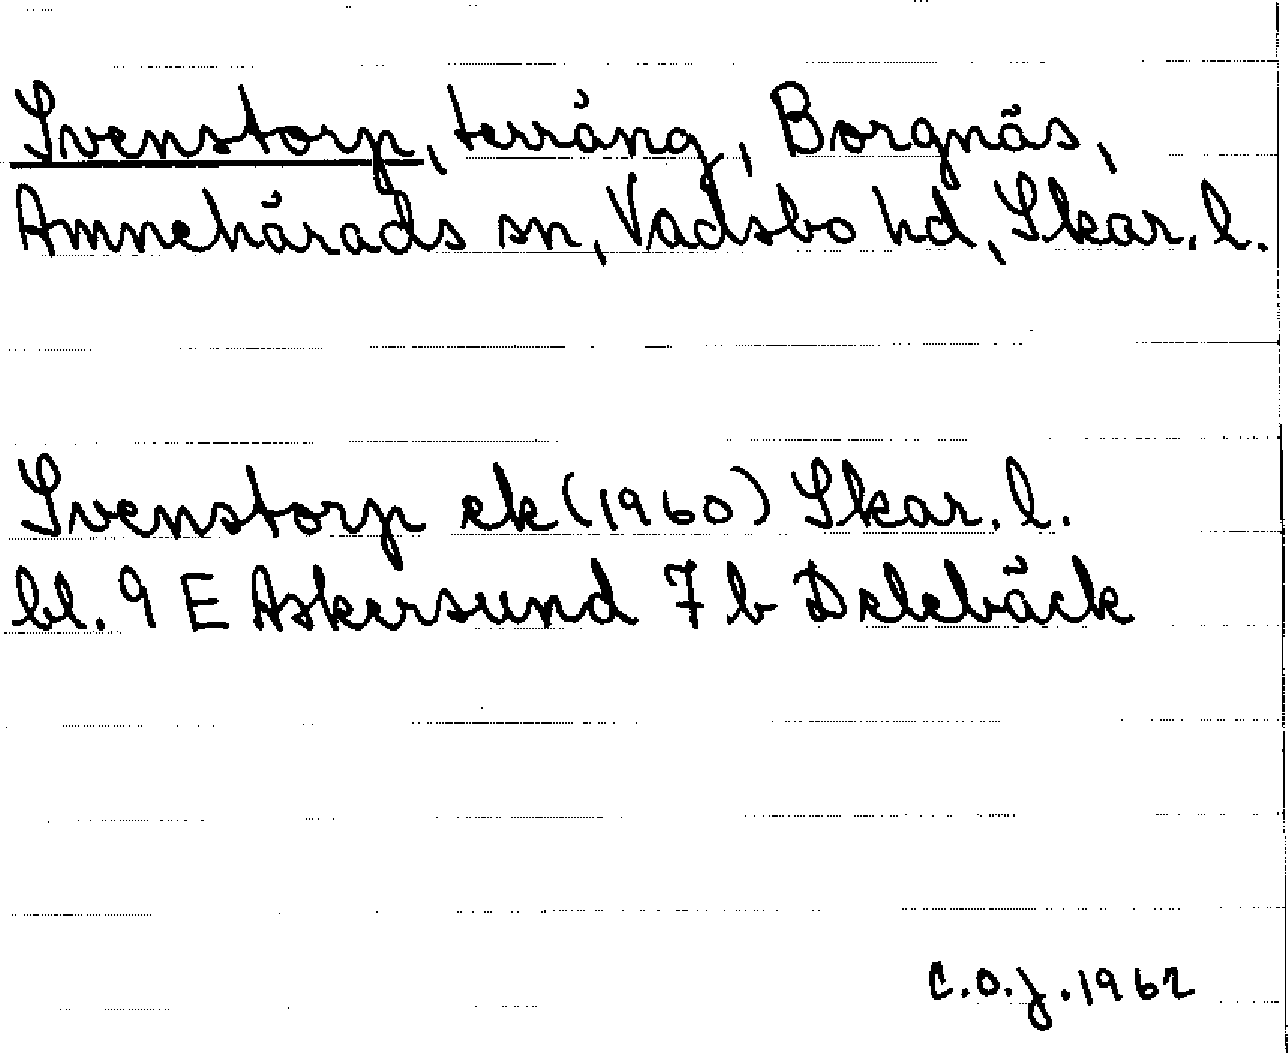 Svenstorp, terräng, Borgnäs,
Amnehärads sn, Vadsbo hd, Skar. l.
Svenstorp ek (1960) Skar. l.
bl. 9 E Askersund 7 b Delebäck
C.O.J. 1962